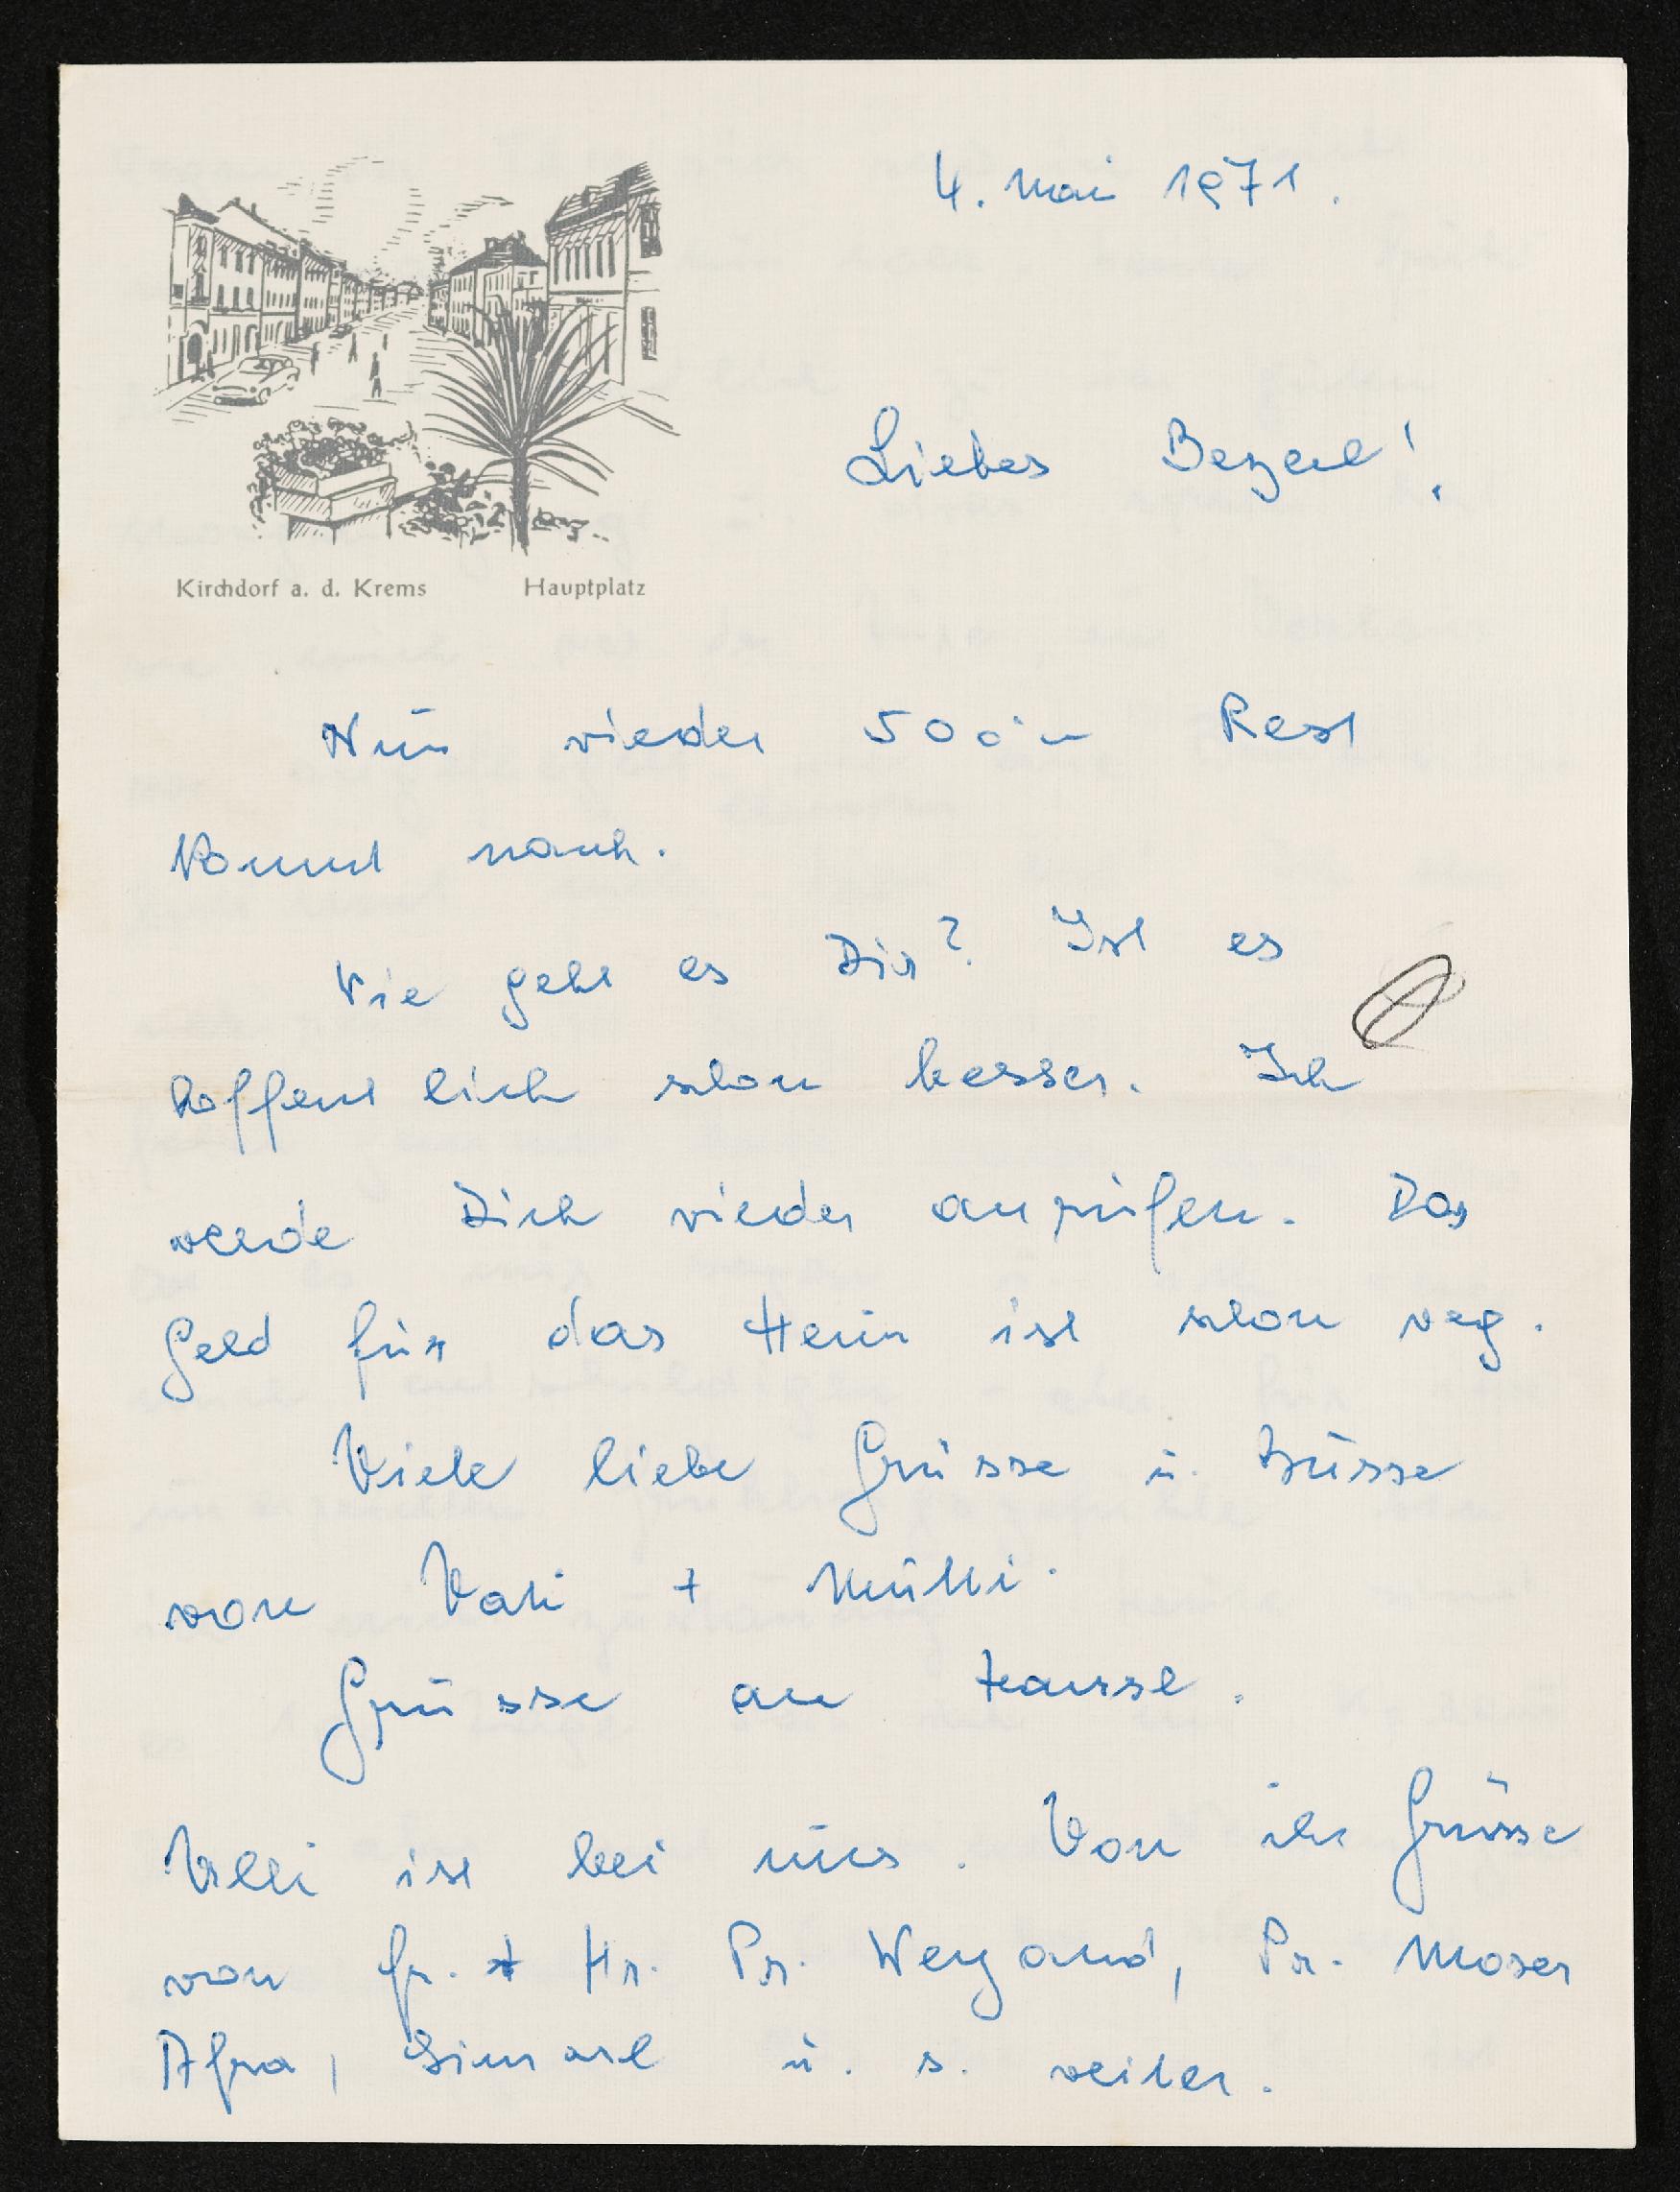 4. Mai 1971.
Liebes Bezerl!
Kirchdorf a. d. Krems Hauptplatz
Nun wieder 500.– Rest
kommt nach.
Wie geht es Dir? Ist es
hoffentlich schon besser. Ich
werde Dich wieder anrufen. Das
Geld für das Heim ist schon weg.
Viele liebe Grüsse u. Büsse
von Vati + Mutti.
Grüsse an Hansl.
Willi ist bei uns. Von ihr Grüsse
von Fr. + Hr. Pr. Weyand, Pr. Moser
Afra, u. s. weiter.